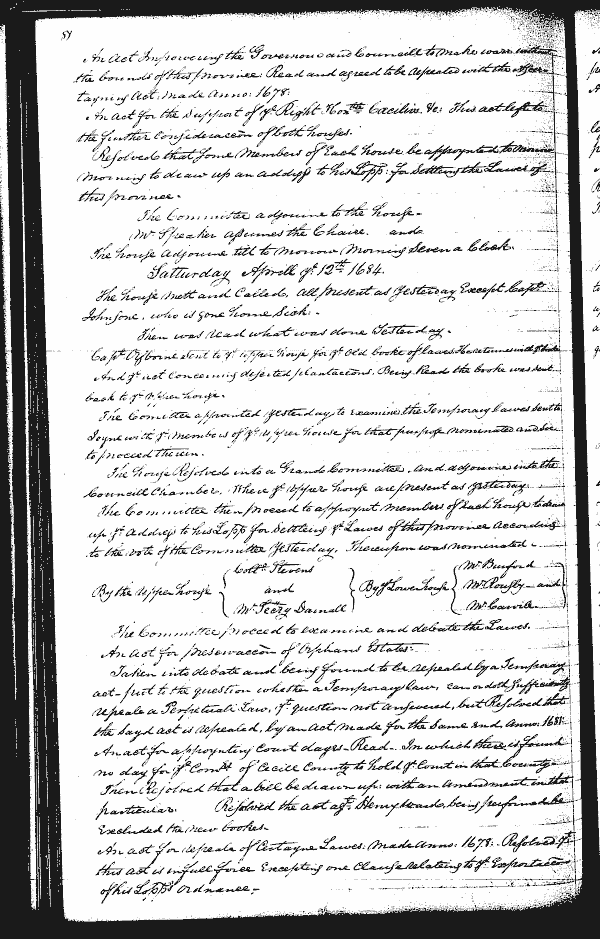 51
An Act Impowering the Governour and Councill to make warr without
the bounds of this province Read and agreed to be repealed with the
tayning Act, made Anno: 1678:
An act for the Support of yᵉ Right Honᵇˡᵉ Cecilius &c: This act left to
the further Consideracon of both houses.
Resolved that some Members of Each house be appoynted to Morrow
Morning to draw up an address to his Lopp: for Settling the Lawes of
this province.
The Committee adjourne to the house.
Mʳ Speaker assumes the Chaire. and
The house adjourne till to Morrow Morning Seven a Clock.
Satturday Aprill yᵉ 12ᵗʰ 1684.
The house mett and Called, all present as Yesterday Except Capᵗ
Johnsone, who is gone home Sick.
Then was read what was done Yesterday.
Capᵗ Osborne sent to yᵉ upper house for yᵉ old booke of lawes. He returnes with yᵉ booke
And yᵉ act Concerning deserted plantacons. Being Read the booke was sent
back to yᵉ upper house.
The Comittee appointed yesterday, to examine the Temporary lawes sent to
Joyne with yᵉ members of yᵉ upper house for that purpose nominated and
to proceed therein.
The house Resolved into a Grand Committee, and adjourne into the
Councill Chamber. Where yᵉ upper house are present as Yesterday
The Committee then proceed to appoynt members of Each house to draw
up yᵉ Address to his Lopp for Settling yᵉ Lawes of this province according
to the vote of the Committee Yesterday. Thereupon was nominated
By the upper house { Collᵒ Stevens and Mʳ Darnall } By yᵉ Lower house { Mʳ Burford Mʳ Rousby and Mʳ Carvile }
The Committee proceed to examine and debate the Lawes.
An Act for preservacon of Orphans Estates.
Taken into debate and being found to be repealed by a Temporary
act - put to the question whether a Temporary law, can or doth Sufficiently
repeale a Perpetuall Law, yᵉ question not answered, but Resolved that
the sayd act is repealed, by an Act made for the Same end Anno: 1681.
An act for appoynting Court dayes - Read. In which there is found
no day for yᵉ Comʳˢ of Cecill County to hold yᵉ Court in that County
Then Resolved that a bill be drawn up with an amendment in that
particular. Resolved the act agᵗ Henry Ward, being performed be
Excluded the new bookes.
An Act for repeale of Certayne Lawes: Made Anno: 1678. Resolved yᵗ
this act is in full force Excepting one Clause relating to yᵉ Exportacon
of his Lopps ordnance.